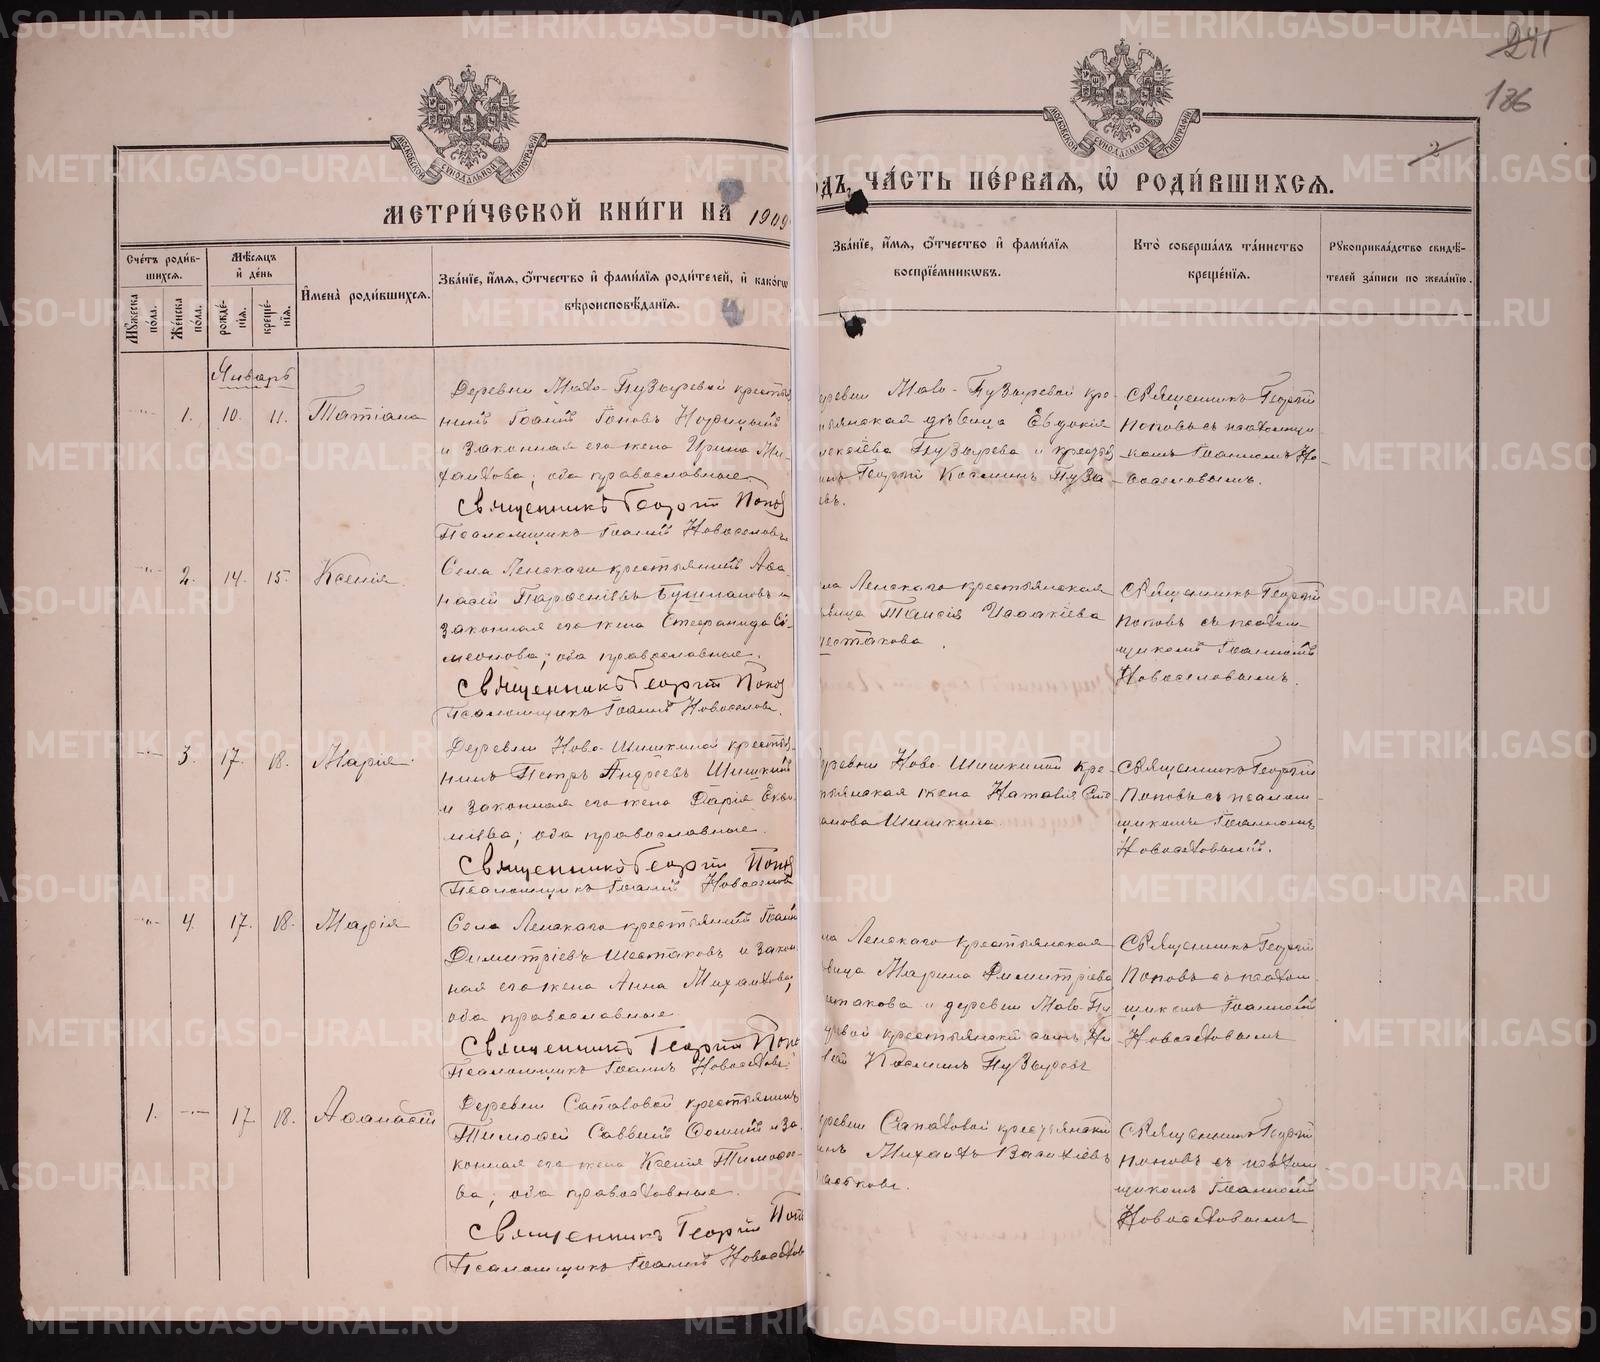 241
186
2
МОСКОВСКОЙ СѴНОДАЛЬНОЙ ТИПОГРАФІИ
МОСКОВСКОЙ СѴНОДАЛЬНОЙ ТИПОГРАФІИ
МЕТРИ́ЧЕСКОЙ КНИ́ГИ НА 1909
ОДЪ, ЧА́СТЬ ПЕ́РВАЯ, Ѡ҆ РОДИ́ВШИХСЯ.
Сче́тъ роди́в-
шихся.
Мѣ́сяцъ
и҆ де́нь
Мꙋ́жеска по́ла.
Же́нска по́ла.
рожде́-
нїѧ.
креще́-
нїѧ.
И҆мена̀ роди́вшихся.
Зва́нїе, и҆́мя, ѻ҆́тчество и҆ фами́лїя роди́телей, и҆ како́гѡ
вѣроисповѣ́данїѧ.
Зва́нїе, и҆́мя, ѻ҆́тчество и҆ фами́лїя
воспрїе́мникѡвъ.
Кто̀ соверша́лъ та́инство
креще́нїѧ.
Рꙋкоприкла́дство свидѣ́-
телей за́писи по жела́нїю.
Январь
1. 10. 11. Татіана
Деревни Мало-Пузыревой кресть
нинъ Іоаннъ
и законная его жена Ирина Ми-
хаилова; оба православные.
Священникъ Георгій Попов
Псаломщикъ Іоаннъ Новоселовъ
еревни Мало-Пузыревой кре-
тьянская дѣвица Евдокія
лексіева Пузырева и кресть
инъ Георгій Космин Пузы-
евъ.
Священникъ Георгій
Поповъ съ псаломщи-
комъ Іоанномъ Но-
воселовымъ.
2. 14. 15. Ксенія
Села Ленскаго крестьянинъ Аѳа-
насій Парѳеніевъ Бушлановъ и
законная его жена Стефанида Си-
меонова; оба православные.
Священникъ Георгій Попов
Псаломщикъ Іоаннъ Новоселовъ.
ла Ленскаго крестьянская
вица Таисія Исаакіева
естакова.
Священникъ Георгій
Поповъ съ псалом-
щикомъ Іоанномъ
Новоселовымъ.
3. 17. 18. Марія
Деревни Ново-Шишкиной кресть-
нинъ Петръ Андреевъ Шишкинъ
и законная его жена Дарія
оба православные.
Священникъ Георгій Попов
Псаломщикъ Іоаннъ Новоселов
еревни Ново-Шишкиной кре-
тьянская жена Наталія Сте
анова Шишкина
Священникъ Георгій
Поповъ съ псалом-
щикомъ Іоанномъ
Новоселовымъ.
4. 17. 18. Марія
Села Ленскаго крестьянинъ Іоанн
Димитріевъ Шестаковъ и закон
ная его жена Анна Михаилова;
оба православные.
Священникъ Георгій Попо
Псаломщикъ Іоаннъ Новоселовъ
ла Ленскаго крестьянская
вица Марина Димитріева
стакова и деревни Мало-Пу
ревой крестьянскій сынъ Ни
лай Косминъ Пузыревъ
Священникъ Георгій
Поповъ съ псалом-
щикомъ Іоанномъ
Новоселовымъ
1. 17 18. Аѳанасій
Деревни Сапаловой крестьянинъ
Тимоѳей Саввинъ Ѳоминъ и за-
конная его жена Ксенія Тимоѳе-
ва; оба православные.
Священникъ Георгій Попо
Псаломщикъ Іоаннъ Новоселов
еревни Сапаловой крестьянскій
ынъ Михаилъ Василіевъ
Священникъ Георгій
Поповъ съ псалом
щикомъ Іоанномъ
Новоселовымъ
METRIKI.GASO-URAL.RU